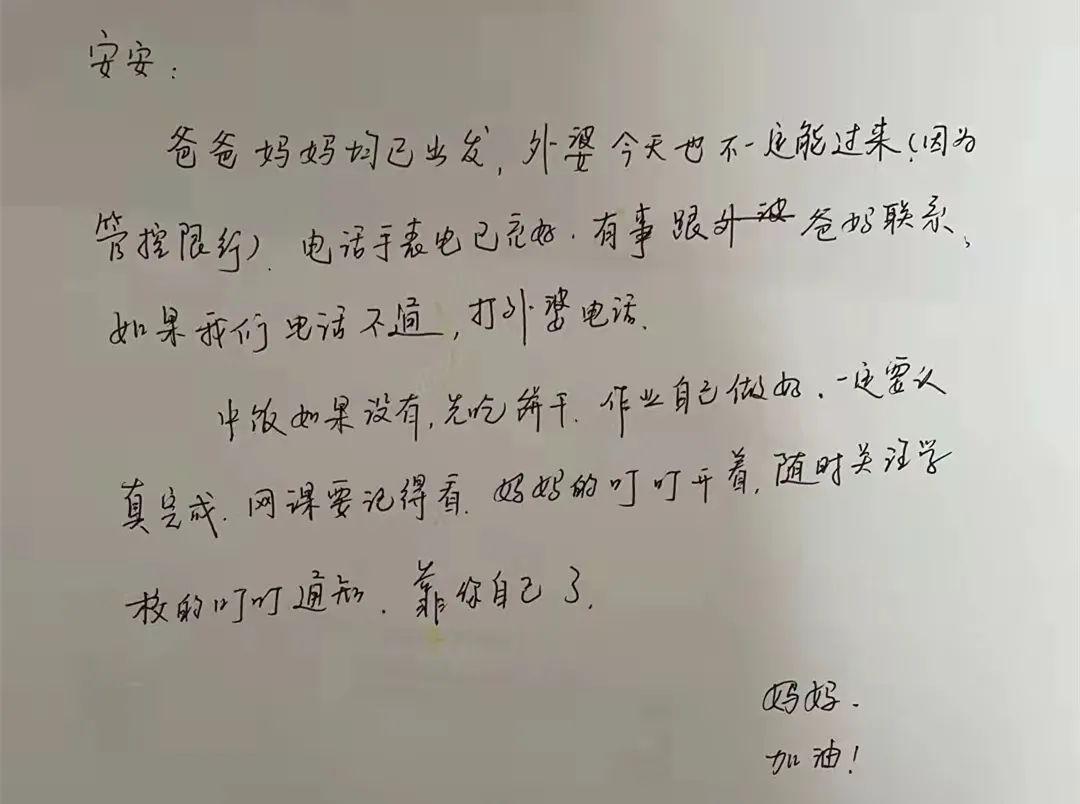 安安：
爸爸妈妈均已出发，外婆今天也不一定能过来（因为
管控限行）．电话手表电已充好．有事跟外婆爸妈联系，
如果我们电话不通，打外婆电话．
中饭如果没有，先吃饼干．作业自己做好．一定要认
真完成．网课要记得看．妈妈的叮叮开着，随时关注学
校的叮叮通知．靠你自己了．
妈妈．
加油！